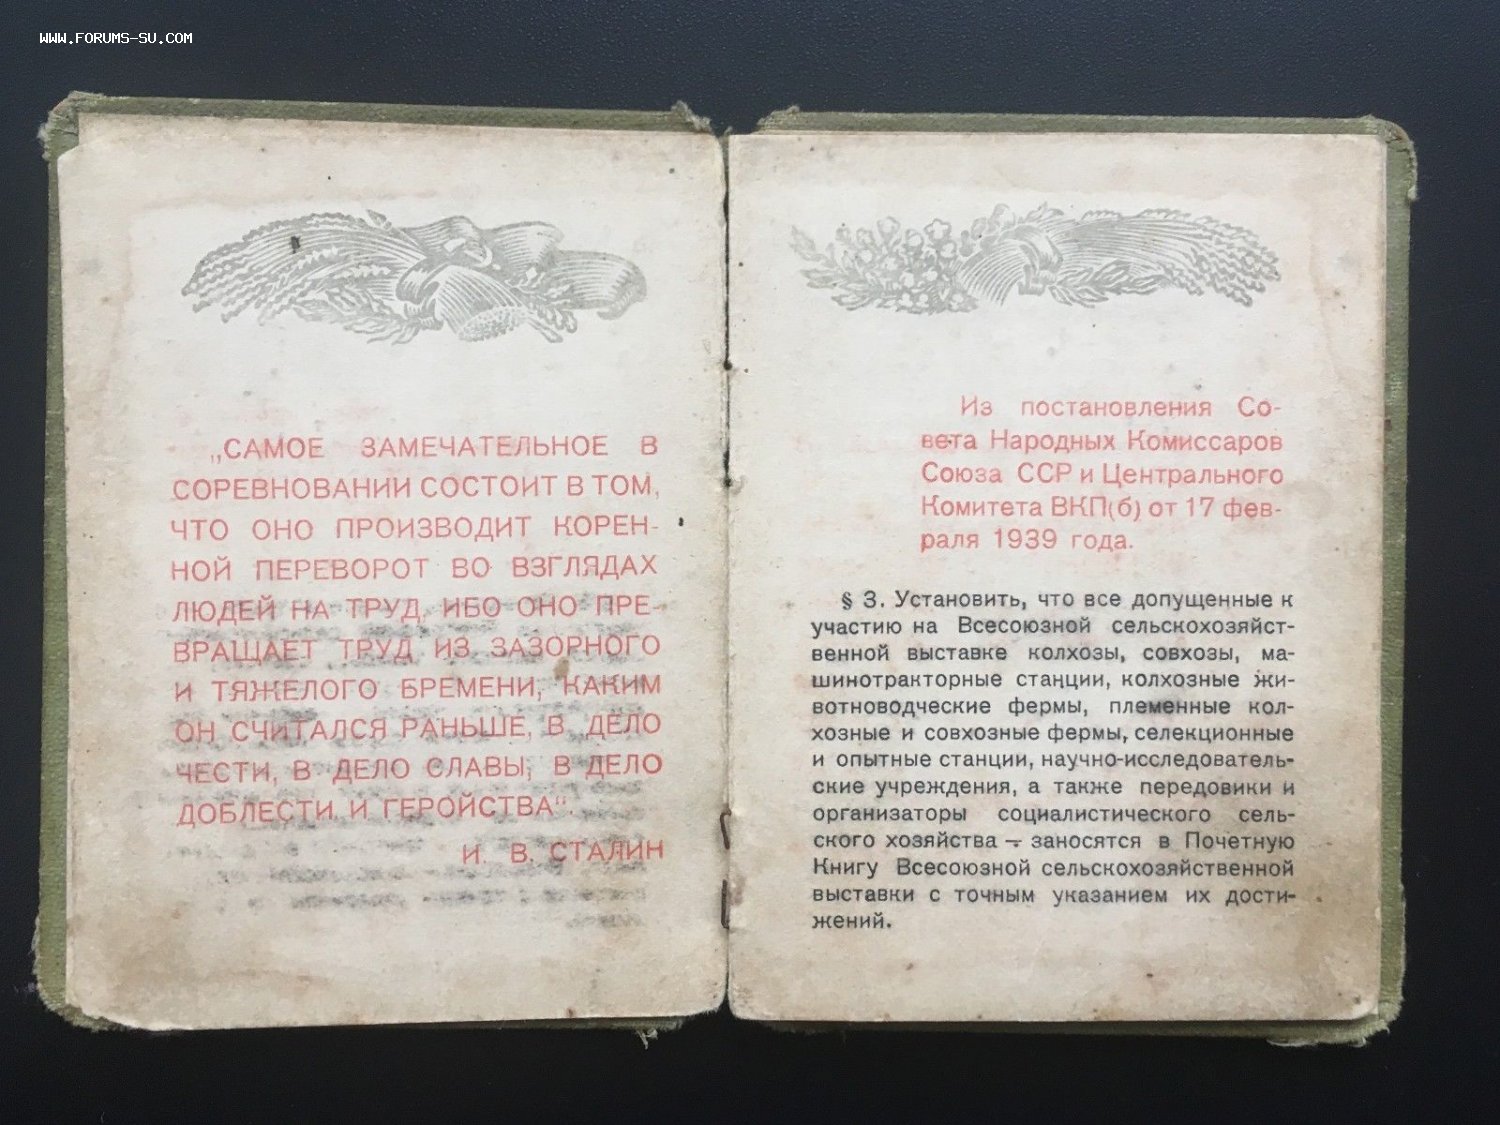 WWW.FORUMS-SU.COM
„САМОЕ ЗАМЕЧАТЕЛЬНОЕ В
СОРЕВНОВАНИИ СОСТОИТ В ТОМ,
ЧТО ОНО ПРОИЗВОДИТ КОРЕН-
НОЙ ПЕРЕВОРОТ ВО ВЗГЛЯДАХ
ЛЮДЕЙ НА ТРУД, ИБО ОНО ПРЕ-
ВРАЩАЕТ ТРУД ИЗ ЗАЗОРНОГО
И ТЯЖЕЛОГО БРЕМЕНИ, КАКИМ
ОН СЧИТАЛСЯ РАНЬШЕ, В ДЕЛО
ЧЕСТИ, В ДЕЛО СЛАВЫ, В ДЕЛО
ДОБЛЕСТИ И ГЕРОЙСТВА“.
И. В. СТАЛИН
Из постановления Со-
вета Народных Комиссаров
Союза ССР и Центрального
Комитета ВКП(б) от 17 фев-
раля 1939 года.
§ 3. Установить, что все допущенные к
участию на Всесоюзной сельскохозяйст-
венной выставке колхозы, совхозы, ма-
шинотракторные станции, колхозные жи-
вотноводческие фермы, племенные кол-
хозные и совхозные фермы, селекционные
и опытные станции, научно-исследователь-
ские учреждения, а также передовики и
организаторы социалистического сель-
ского хозяйства — заносятся в Почетную
Книгу Всесоюзной сельскохозяйственной
выставки с точным указанием их дости-
жений.